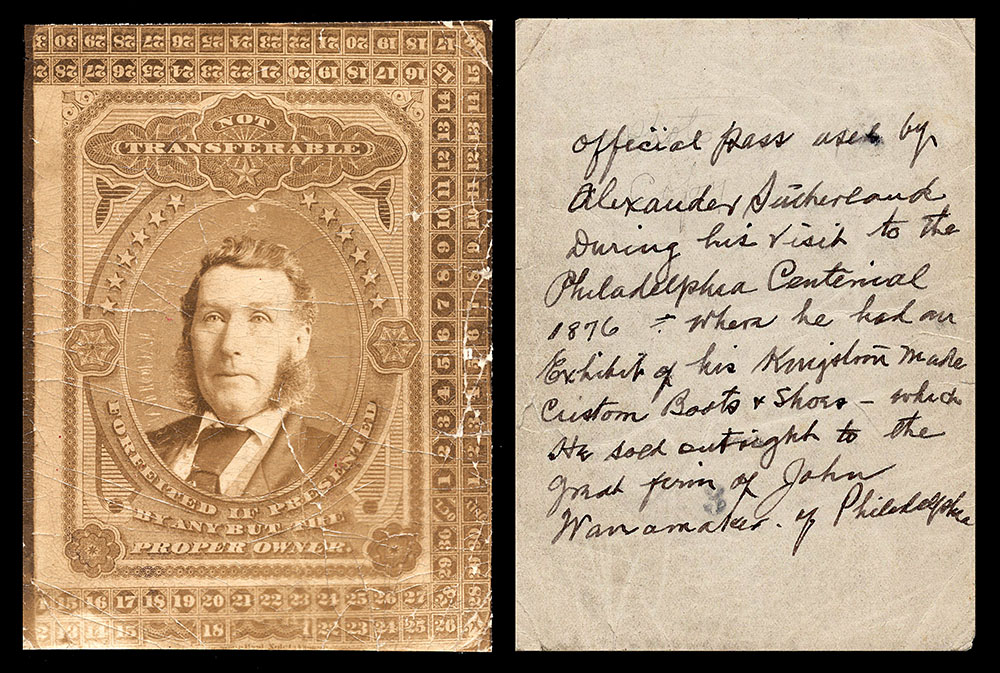 30 29 28 27 26 25 24 23 22 21 20 19 18 17
28 27 26 25 24 23 22 21 20 19 18 17 16 15
NOT
TRANSFERABLE
14
13
12
11
10
9
8
7
6
5
4
3
2
1
FORFEITED IF PRESENTED
BY ANY BUT THE
PROPER OWNER.
31
30
29
28
15 16 17 18 19 20 21 22 23 24 25 26 27
12 13 14 15 18 22 23 24 25 26
official pass used by
Alexander Sutherland
During his visit to the
Philadelphia Centenial
1876 - Where he had an
Exhibit of his Kingston Made
Custom Boots & Shoes - which
He sold outright to the
great firm of John
Wanamaker. of Philadelphia